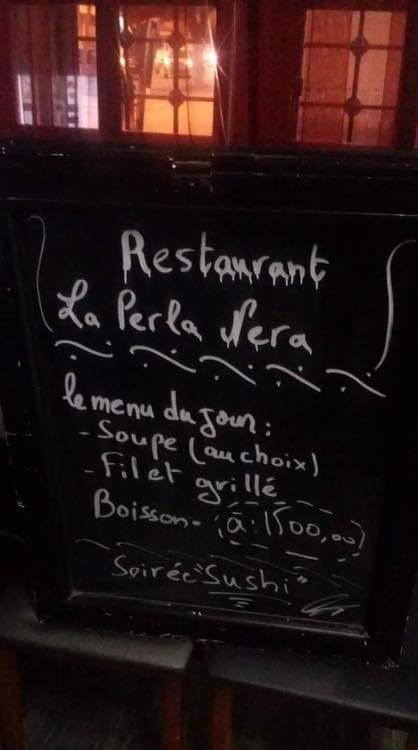 Restaurant
La Perla Nera
le menu du jour :
- Soupe (au choix)
- Filet grillé
Boisson - à : 1500,00
Soirée "Sushi"